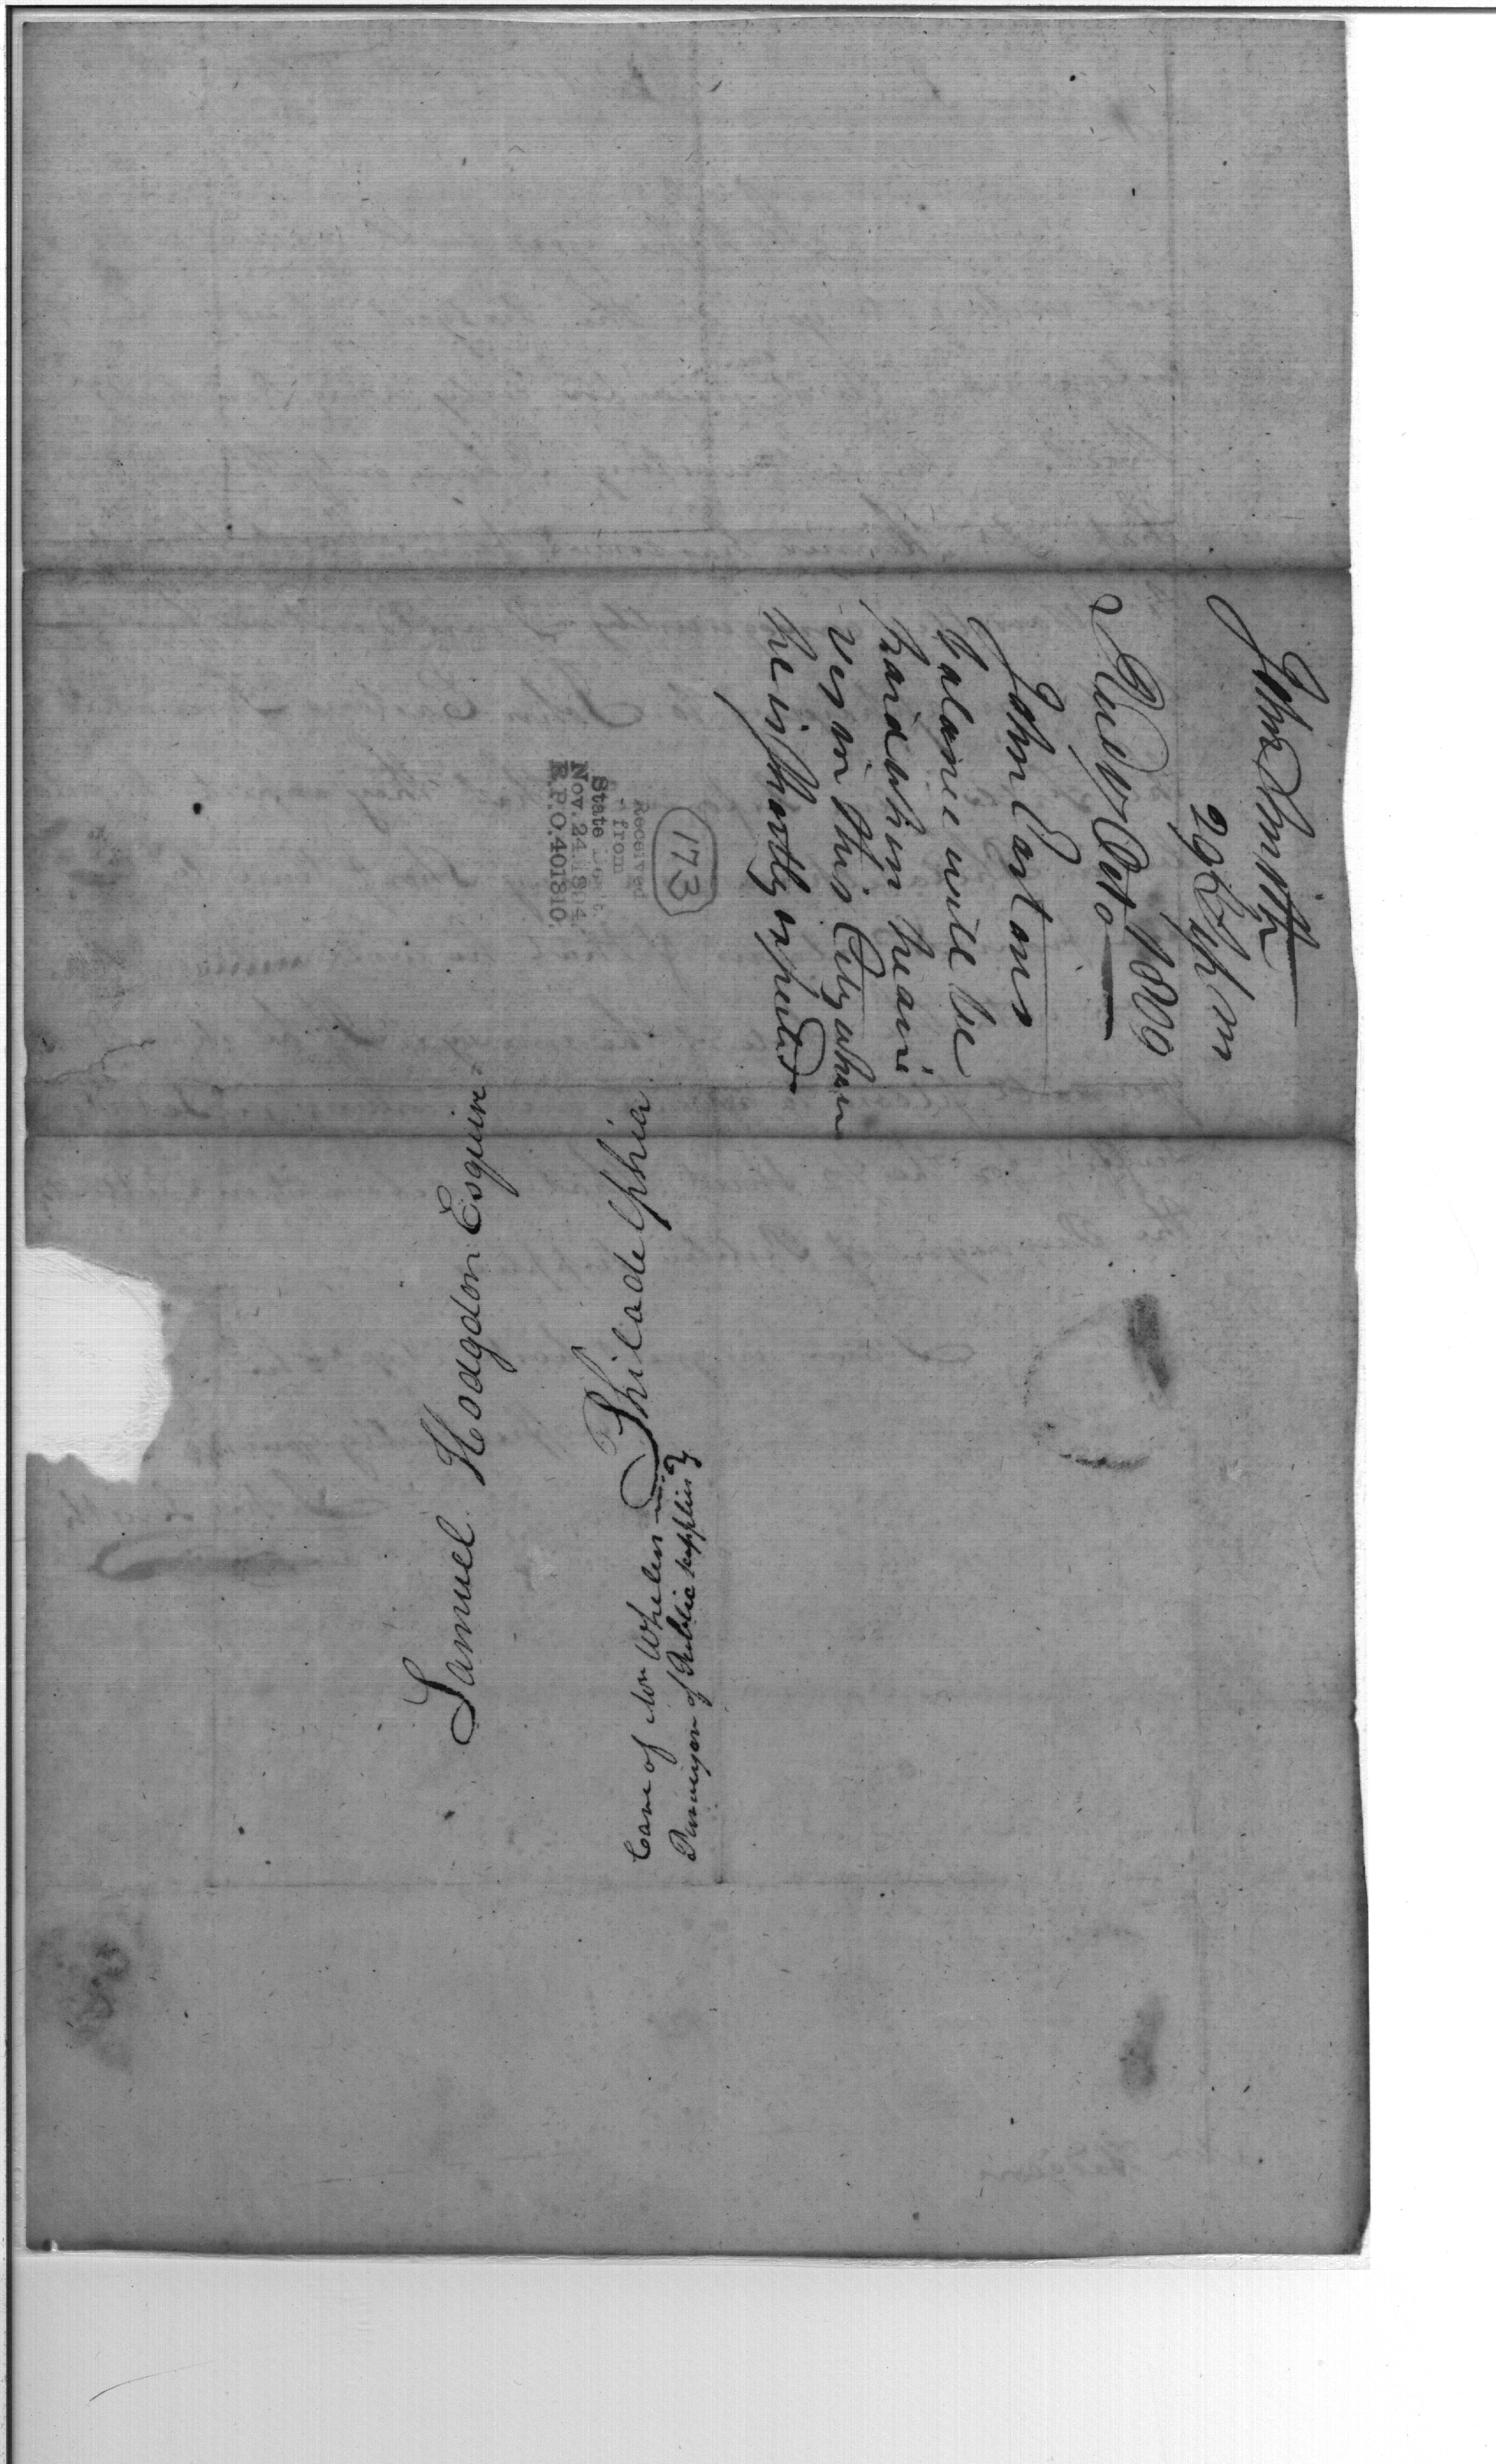 John Smith
29th Sepm
Recd 4 Octo 1800
John Eastons
balance will be
paid when he arri
-ves in this City when
he is shortly expected
173
Received
from
State Dept.
Nov. 24, 1894.
R.P.O. 401810.
Samuel Hodgdon Esquire
Philadelphia
Care of Mr Whelen
Purveyor of Public Supplies